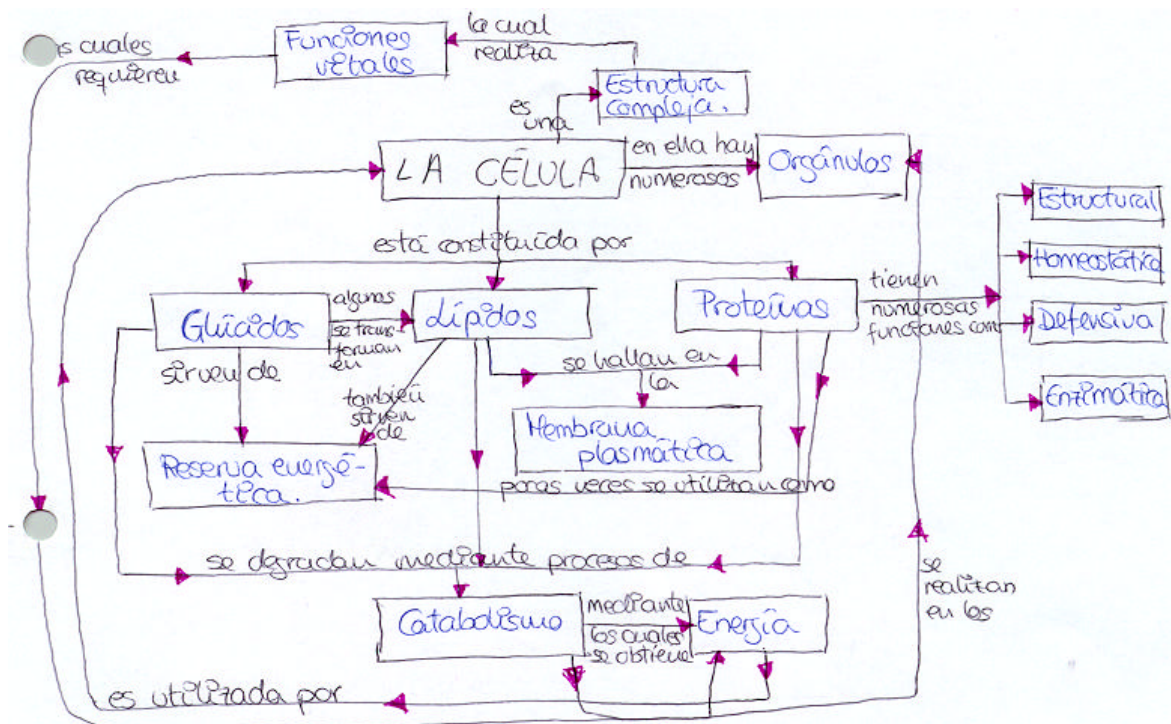 la cual
realiza
Funciones
vitales
s cuales
requieren
Estructura
compleja.
es
una
LA CÉLULA
en ella hay
numerosos
Orgánulos
está constituida por
Glúcidos
algunos
se trans-
forman
en
Lípidos
Proteínas
tienen
numerosas
funciones como
Estructural
Homeostática
Defensiva
Enzimática
sirven de
también
sirven
de
se hallan en
la
Membrana
plasmática
Reserva energé-
tica.
pocas veces se utilizan como
se degradan mediante procesos de
Catabolismo
mediante
los cuales
se obtiene
Energía
se
realizan
en los
es utilizada por